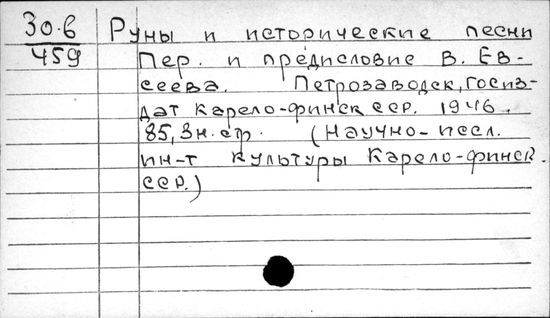 30.6 Руны и исторические песни
459 Пер. и предисловие В. Ев-
сеева. Петрозаводск, Госиз-
дат Карело-финск ССР. 1946.
85,3н.ср. (Научно-иссл.
ин-т культуры Карело-финск.
ССР.)